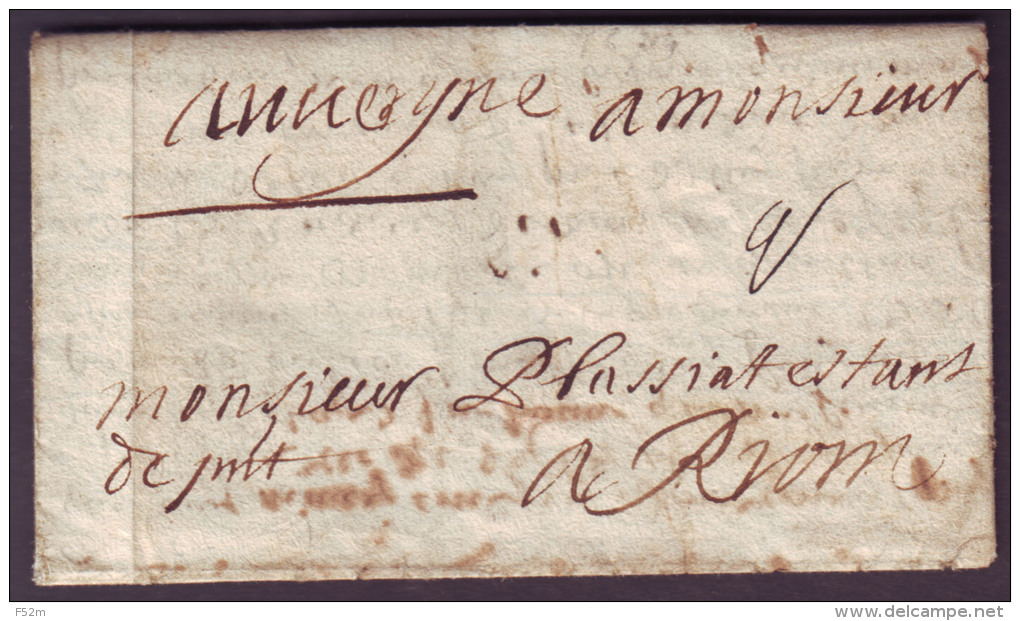 auuergne a monsieur
9
monsieur Plassiat estant
de pnt a Riom
F52m
www.delcampe.net